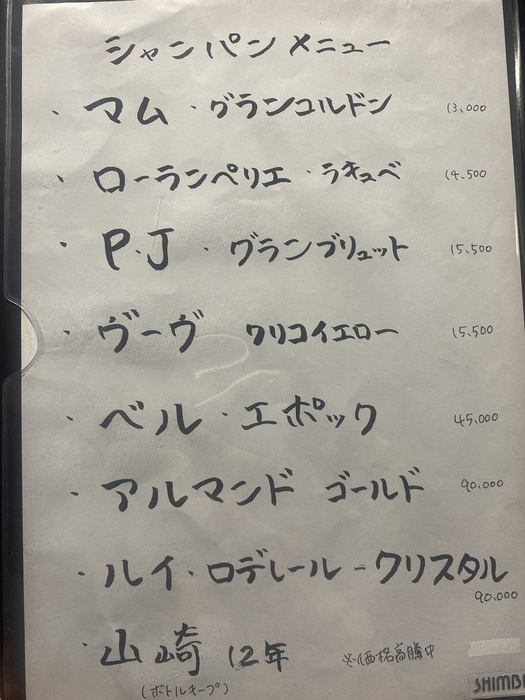 シャンパンメニュー
・マム・グランコルドン 13,000
・ローランペリエ・ラキュベ 14.500
・P.J・グランブリュット 15,500
・ヴーヴ クリコイエロー 15,500
・ベル・エポック 45,000
・アルマンド ゴールド 90,000
・ルイ・ロデレール-クリスタル
90,000
・山崎 12年 ※価格高騰中
(ボトルキープ)
SHIMB